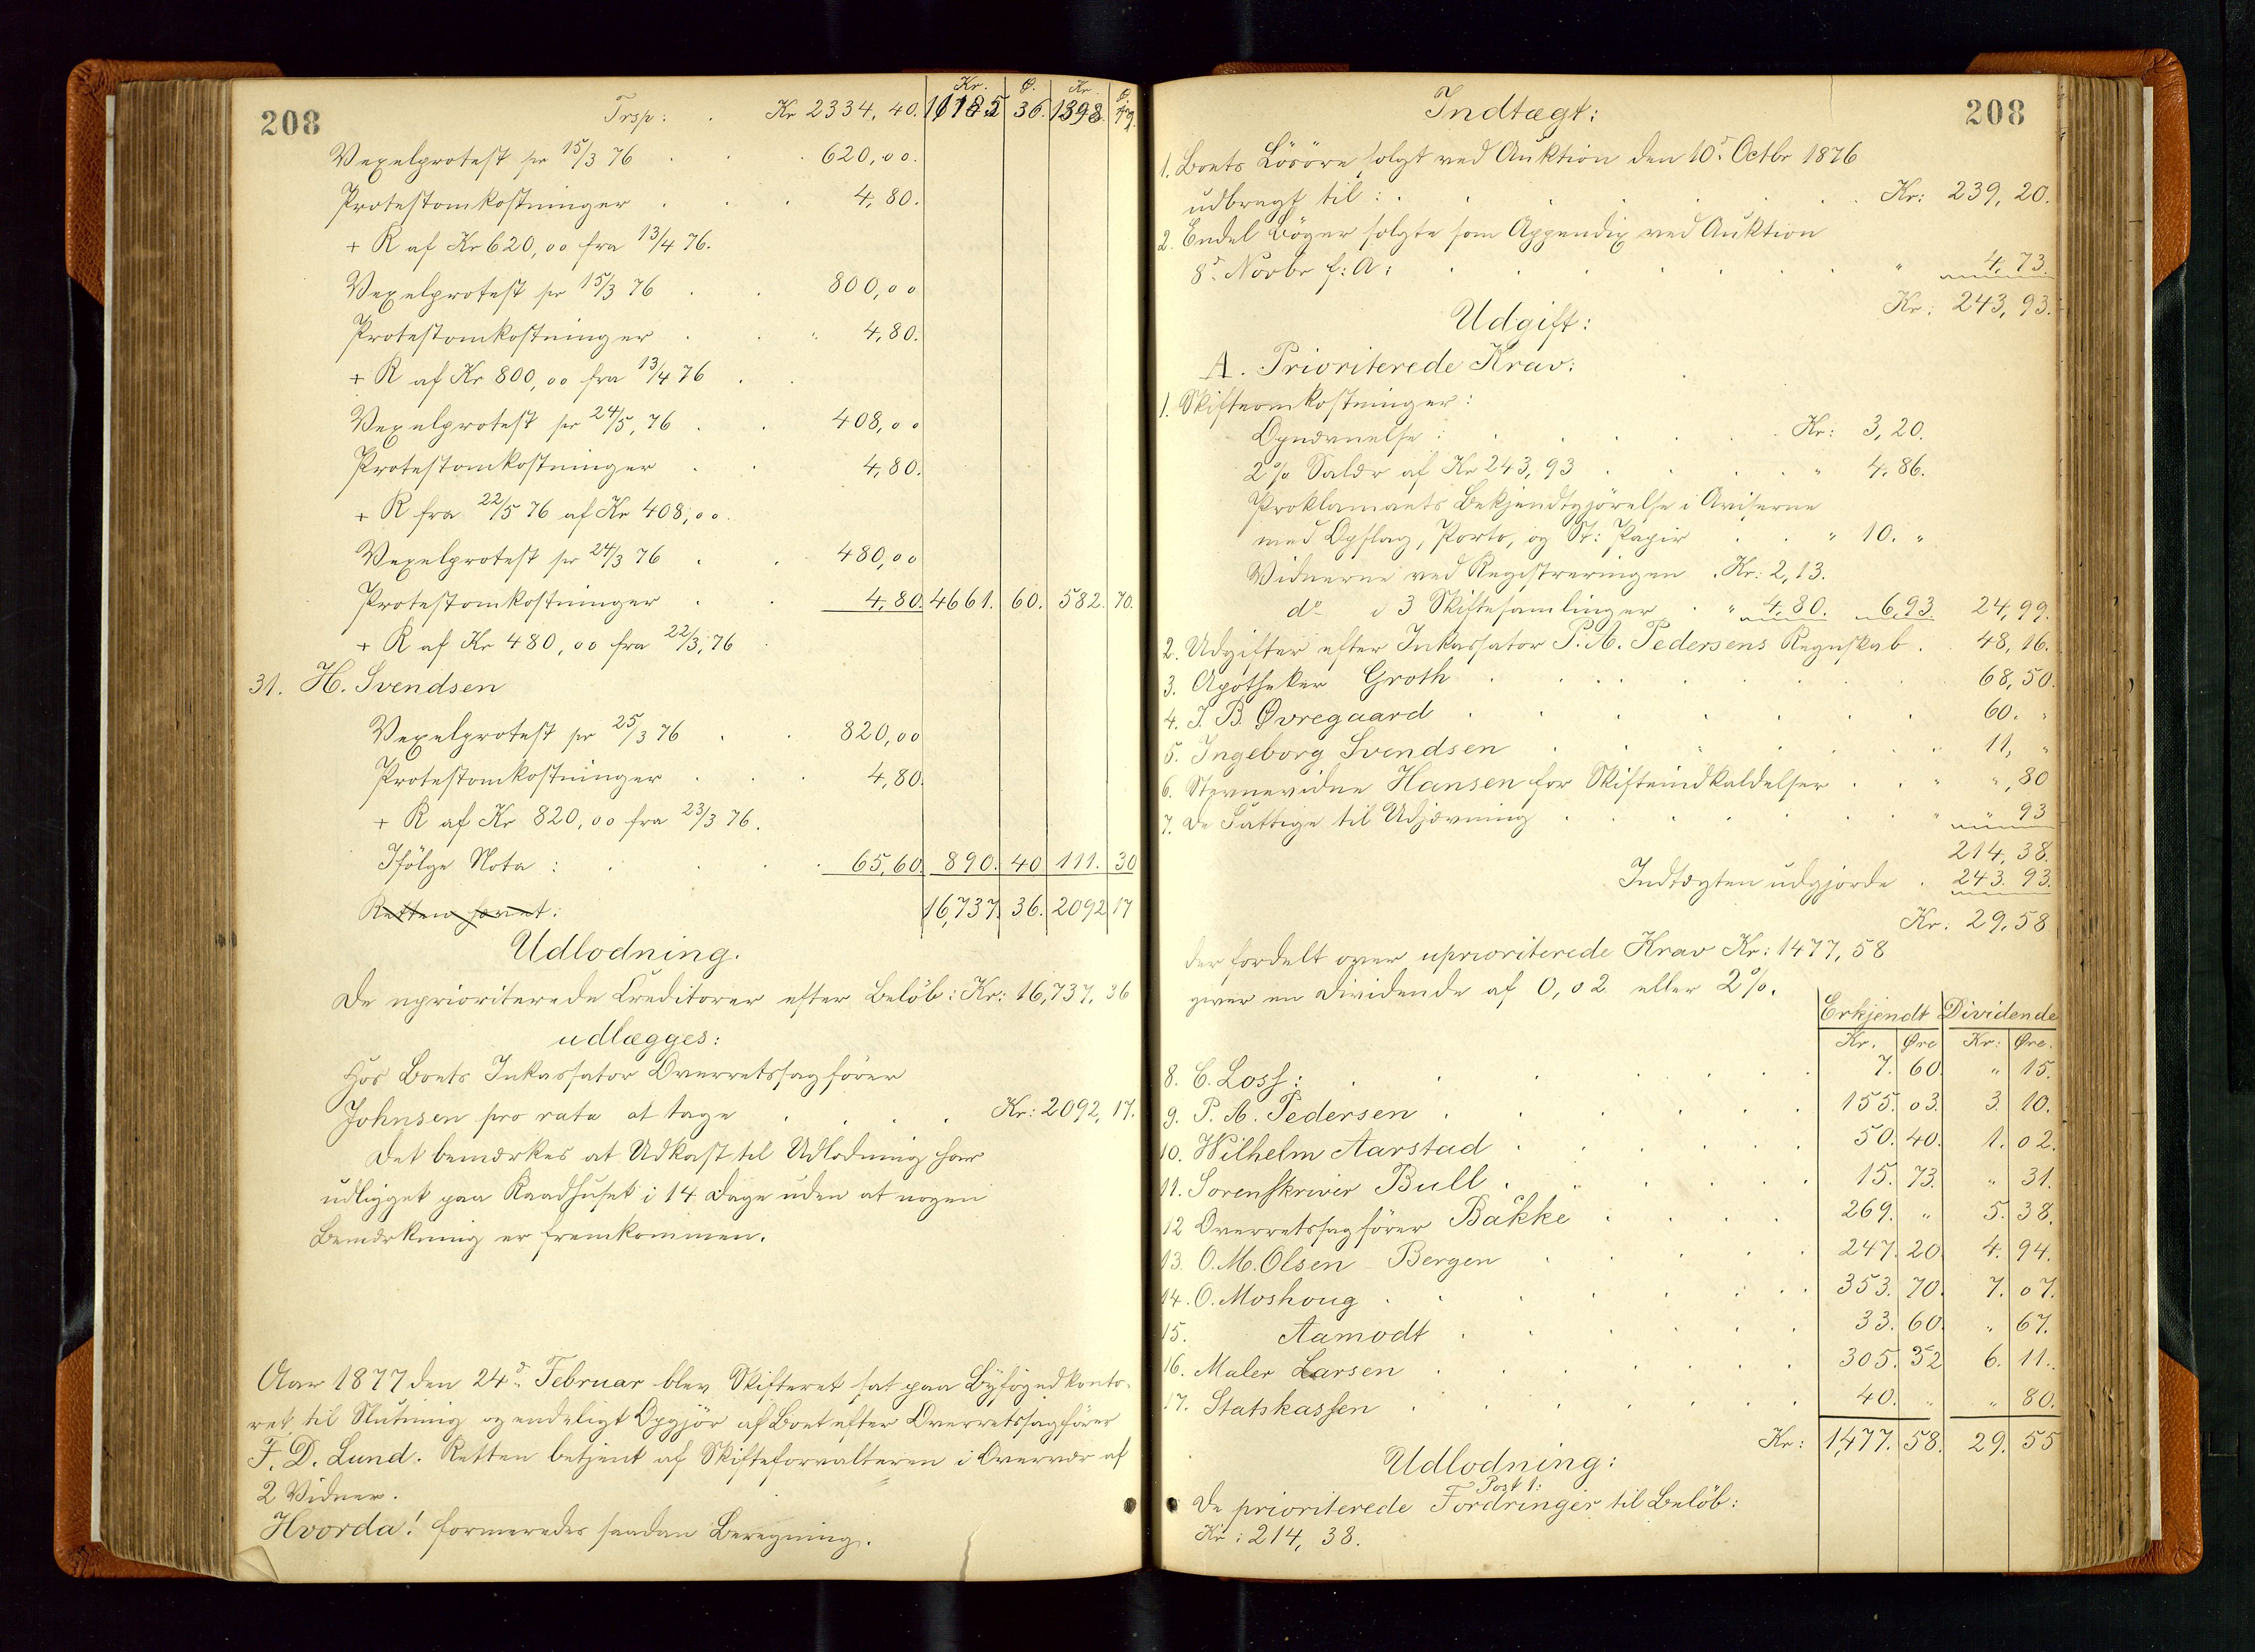 208
Kr. Ø. Kr. Ø.
Trsp: . Kr 2334,40. 11185 36. 1398. 17
Vexelprotest pr 15/3 76 . . . 620,00.
Protestomkostninger . . . 4,80.
+ R af Kr 620,00 fra 13/4 76.
Vexelprotest pr 15/3 76 . . 800,00
Protestomkostninger . . . 4,80.
+ R af Kr 800,00 fra 13/4 76 . .
Vexelprotest pr 24/5, 76 . . 408,00
Protestomkostninger . . 4,80.
+ R fra 22/5 76 af Kr 408,00.
Vexelprotest pr 24/3 76 . . 480,00
Protestomkostninger . . 4,80. 4661. 60. 582. 70.
+ R af Kr 480,00 fra 22/3, 76 .
31. H. Svendsen
Vexelprotest pr 25/3 76 . . 820,00
Protestomkostninger . . . 4,80.
+ R af Kr 820,00 fra 23/3 76.
Ifölge Nota : . . . 65,60. 890. 40 111. 30
Retten hævet: 16,737. 36. 2092 17
Udlodning.
De uprioriterede Creditorer efter Belöb: Kr: 16,737,36
udlægges:
Hos Boets Inkassator Overretssagförer
Johnsen pro rata at tage . . . . Kr: 2092,17.
Det bemærkes at Udkast til Udlodning har
udligget paa Raadhuset i 14 Dage uden at nogen
Bemærkning er fremkommen.
Aar 1877 den 24d. Februar blev Skifteret sat paa Byfogedkonto-
ret til Slutning og endeligt Opgjör af Boet efter Overretssagförer
F. D. Lund. Retten betjent af Skifteforvalteren i Overvær af
2 Vidner.
Hvorda! formeredes saadan Beregning.
208
Indtægt:
1. Boets Lösöre solgt ved Auktion den 10d. Octbr 1876
udbragt til : . . . . . . Kr: 239,20.
2. Endel Böger solgte som Appendix ved Auktion
8d. Novbr f: A: . . . . . . " 4,73.
Kr: 243,93.
Udgift:
A. Prioriterede Krav:
1. Skifteomkostninger :
Opnævnelse : . . . . . Kr: 3,20.
2% Salær af Kr 243,93 . . . . " 4,86.
Proklamaets Bekjendtgjörelse i Aviserne
med Opslag, Porto, og St: Papir . . " 10. "
Vidnerne ved Registreringen . Kr: 2,13.
do i 3 Skiftesamlinger . " 4,80. 6,93. 24,99.
2. Udgifter efter Inkassator P. A. Pedersens Regnskab . . 48,16.
3. Apotheker Groth . . . . . . 68,50.
4. J. B. Øvregaard . . . . . . 60. "
5. Ingeborg Svendsen . . . . . 11, "
6. Stevnevidne Hansen for Skifteindkaldelser . . " ",80
7. De Fattige til Udjævning . . . . . " " 93
214,38.
Indtægten udgjorde . 243. 93.
Kr: 29,58
der fordelt over uprioriterede Krav Kr: 1477,58
giver en Dividende af 0,02 eller 2%.
Erkjendt Dividende
Kr. Øre Kr: Øre.
8. C. Loss: . . . . . 7. 60. " 15.
9. P. A. Pedersen . . . . . 155. 03. 3. 10.
10. Wilhelm Aarstad . . . . . 50. 40. 1. 02.
11. Sorenskriver Bull . . . . . 15. 73. " 31.
12 Overretssagförer Bakke . . . . 269. " 5. 38.
13. O. M. Olsen Bergen . . . . 247. 20. 4. 94.
14. O. Moshoug . . . . . . 353. 70. 7. 07.
15. Aamodt . . . . . 33. 60. " 67.
16. Maler Larsen . . . . . . 305. 32 6. 11.
17. Statskassen . . . . . . 40. " " 80.
Kr: 1,477. 58. 29. 55
Udlodning:
Post 1:
De prioriterede Fordringer til Belöb:
Kr: 214, 38.